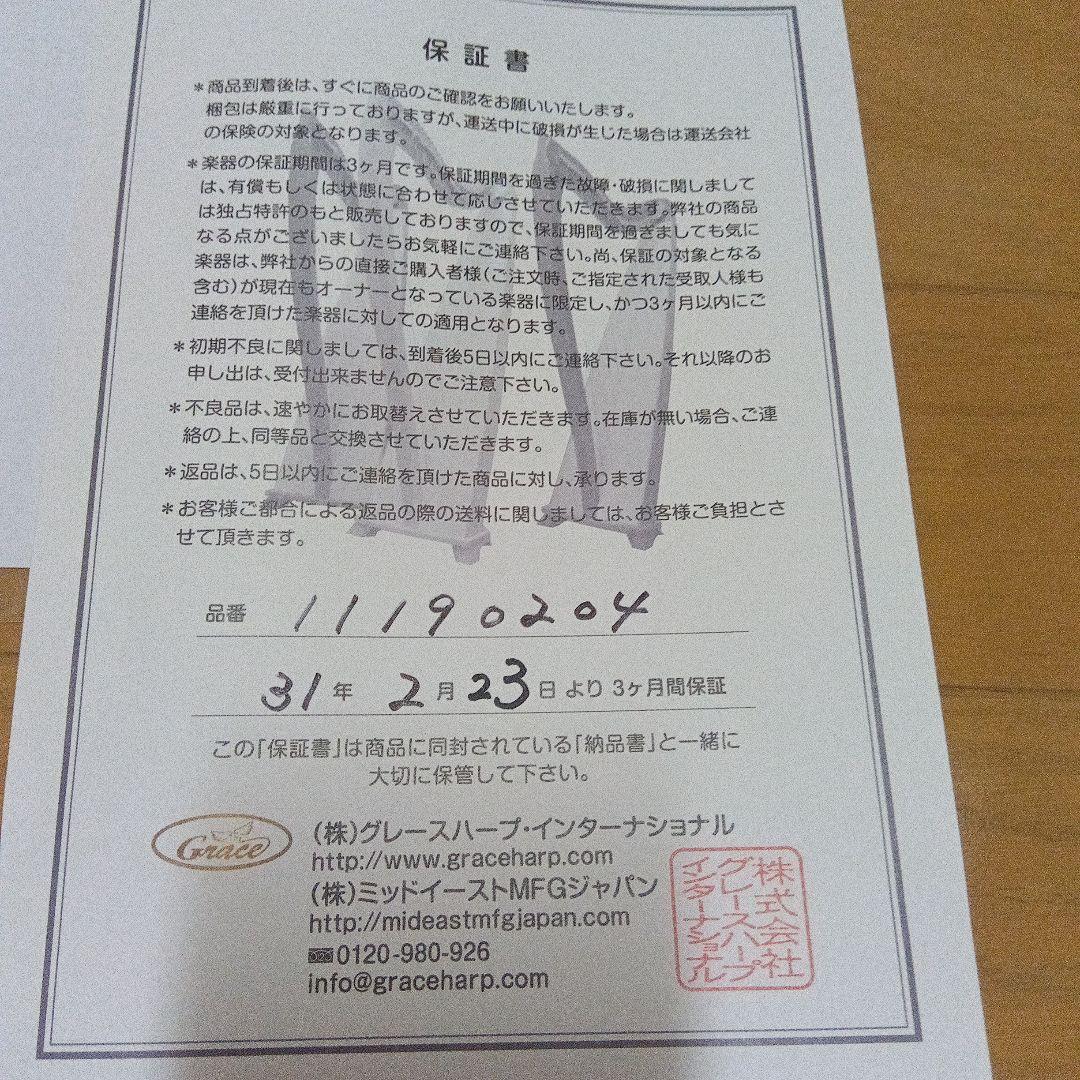 保証書
＊商品到着後は、すぐに商品のご確認をお願いいたします。
梱包は厳重に行っておりますが、運送中に破損が生じた場合は運送会社
の保険の対象となります。
＊楽器の保証期間は3ヶ月です。保証期間を過ぎた故障・破損に関しまして
は、有償もしくは状態に合わせて応じさせていただきます。弊社の商品
は独占特許のもと販売しておりますので、保証期間を過ぎましても気に
なる点がございましたらお気軽にご連絡下さい。尚、保証の対象となる
楽器は、弊社からの直接ご購入者様(ご注文時、ご指定された受取人様も
含む)が現在もオーナーとなっている楽器に限定し、かつ3ヶ月以内にご
連絡を頂けた楽器に対しての適用となります。
＊初期不良に関しましては、到着後5日以内にご連絡下さい。それ以降のお
申し出は、受付出来ませんのでご注意下さい。
＊不良品は、速やかにお取替えさせていただきます。在庫が無い場合、ご連
絡の上、同等品と交換させていただきます。
＊返品は、5日以内にご連絡を頂けた商品に対し、承ります。
＊お客様ご都合による返品の際の送料に関しましては、お客様ご負担とさ
せて頂きます。
品番 11190204
31年 2月23日より3ヶ月間保証
この「保証書」は商品に同封されている「納品書」と一緒に
大切に保管して下さい。
Grace
(株)グレースハープ・インターナショナル
http://www.graceharp.com
(株)ミッドイーストMFGジャパン
http://mideastmfgjapan.com
0120-980-926
info@graceharp.com
株式会社
グレースハープ
インターナショナル